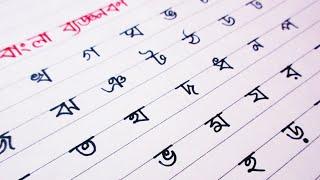 বাংলা ব্যঞ্জনবর্ণ
খ গ ঘ ঙ
জ ঝ ঞ ট ঠ ড
ত থ দ ধ ন প
ভ ম য র
হ ড়